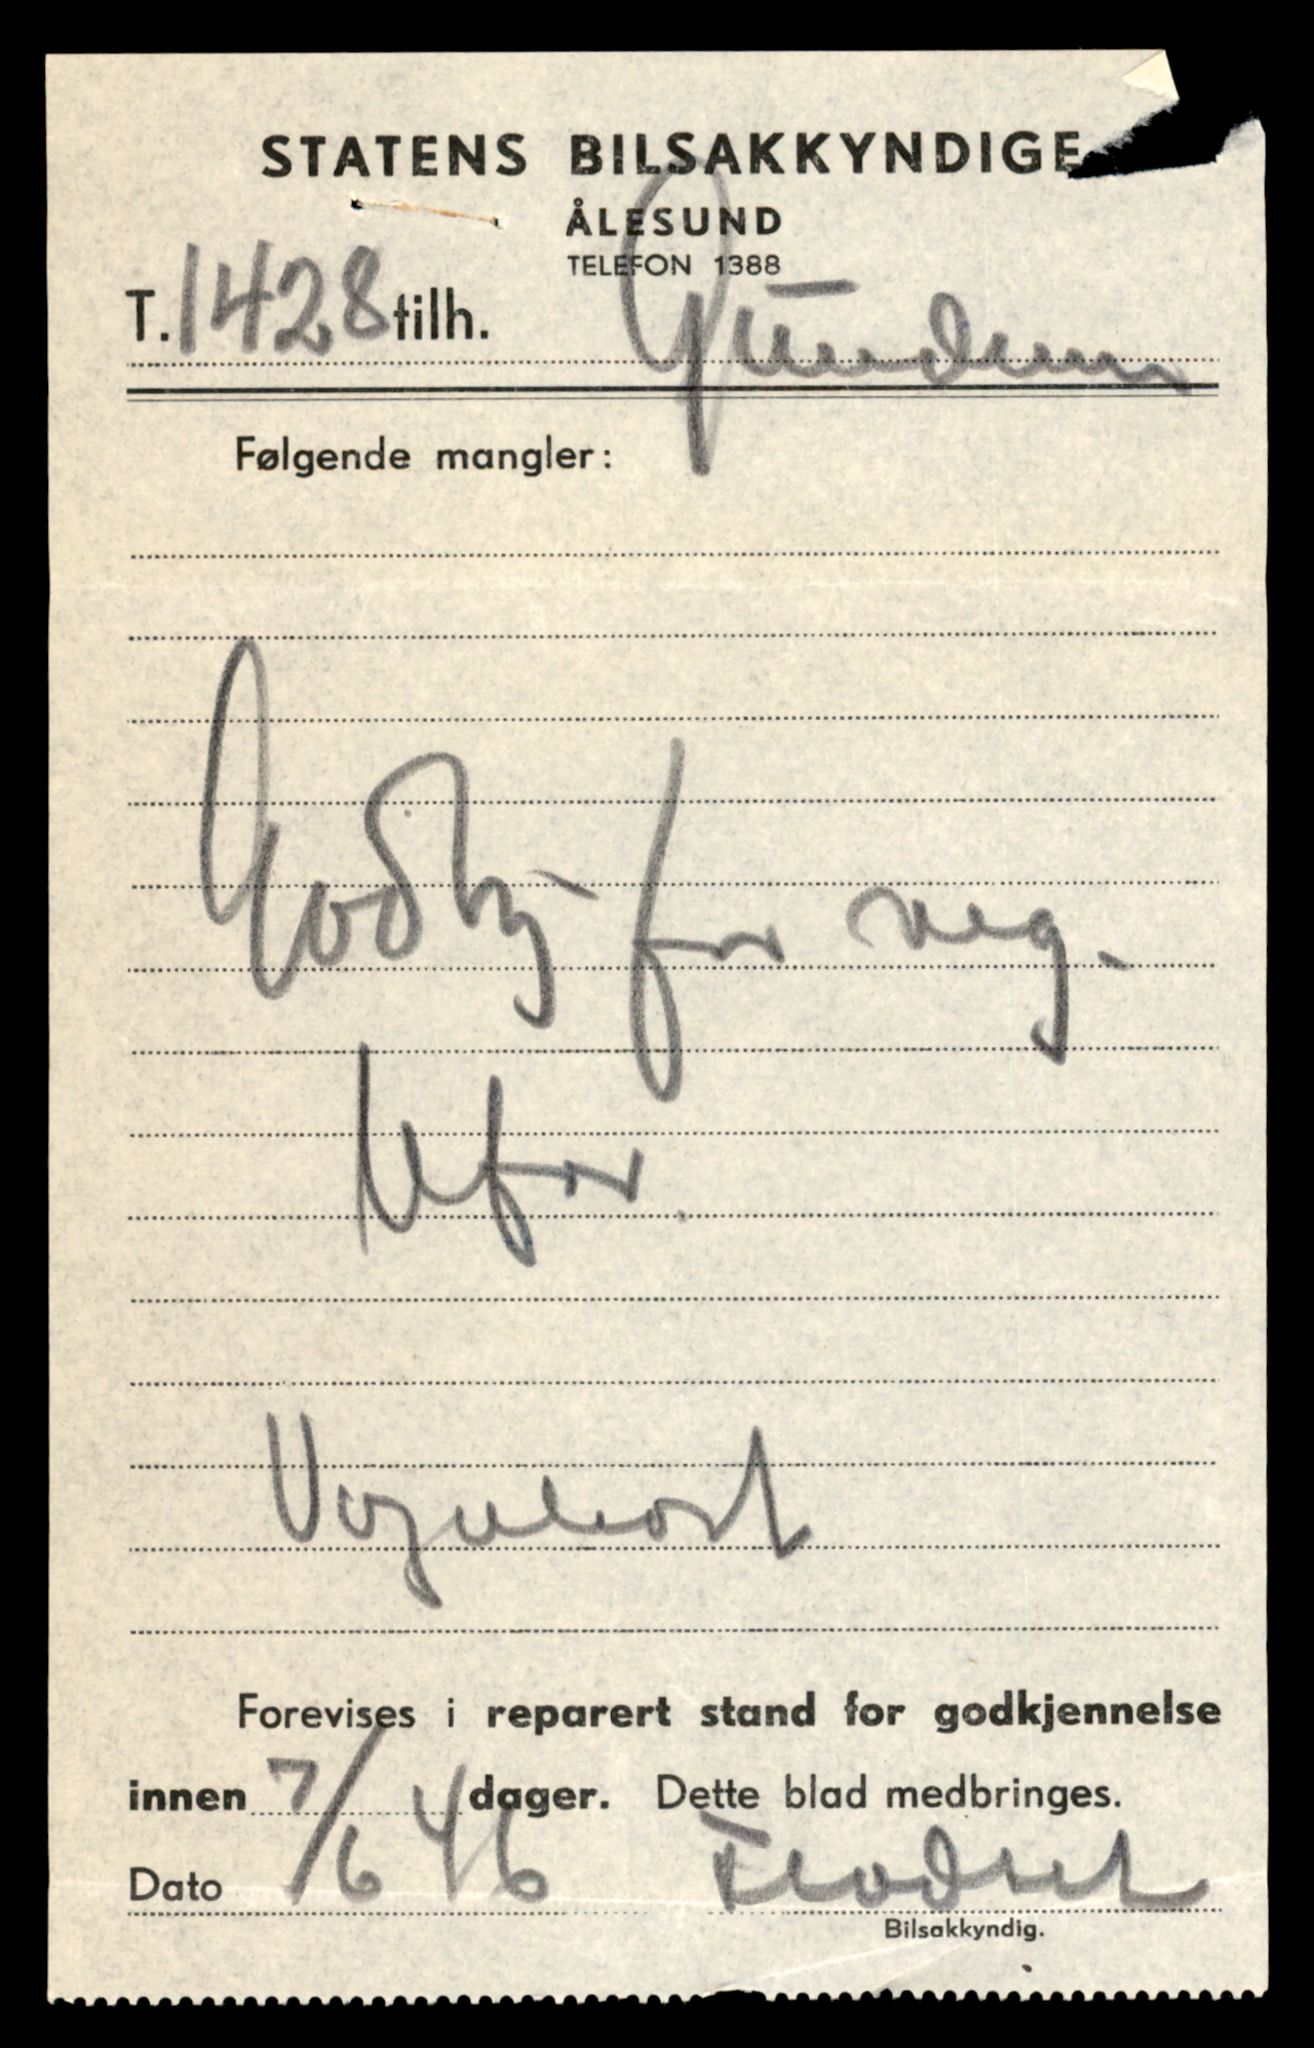 STATENS BILSAKKYNDIGE
ÅLESUND
TELEFON 1388
T. 1428 tilh.
Følgende mangler:
Godkj- for reg.
Ufor.
Vognkort
Forevises i reparert stand for godkjennelse
innen dager. Dette blad medbringes.
Dato 7/6 46 Flodset
Bilsakkyndig.